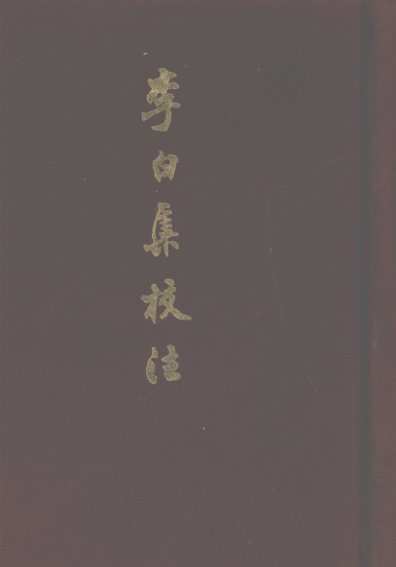 李白集校注